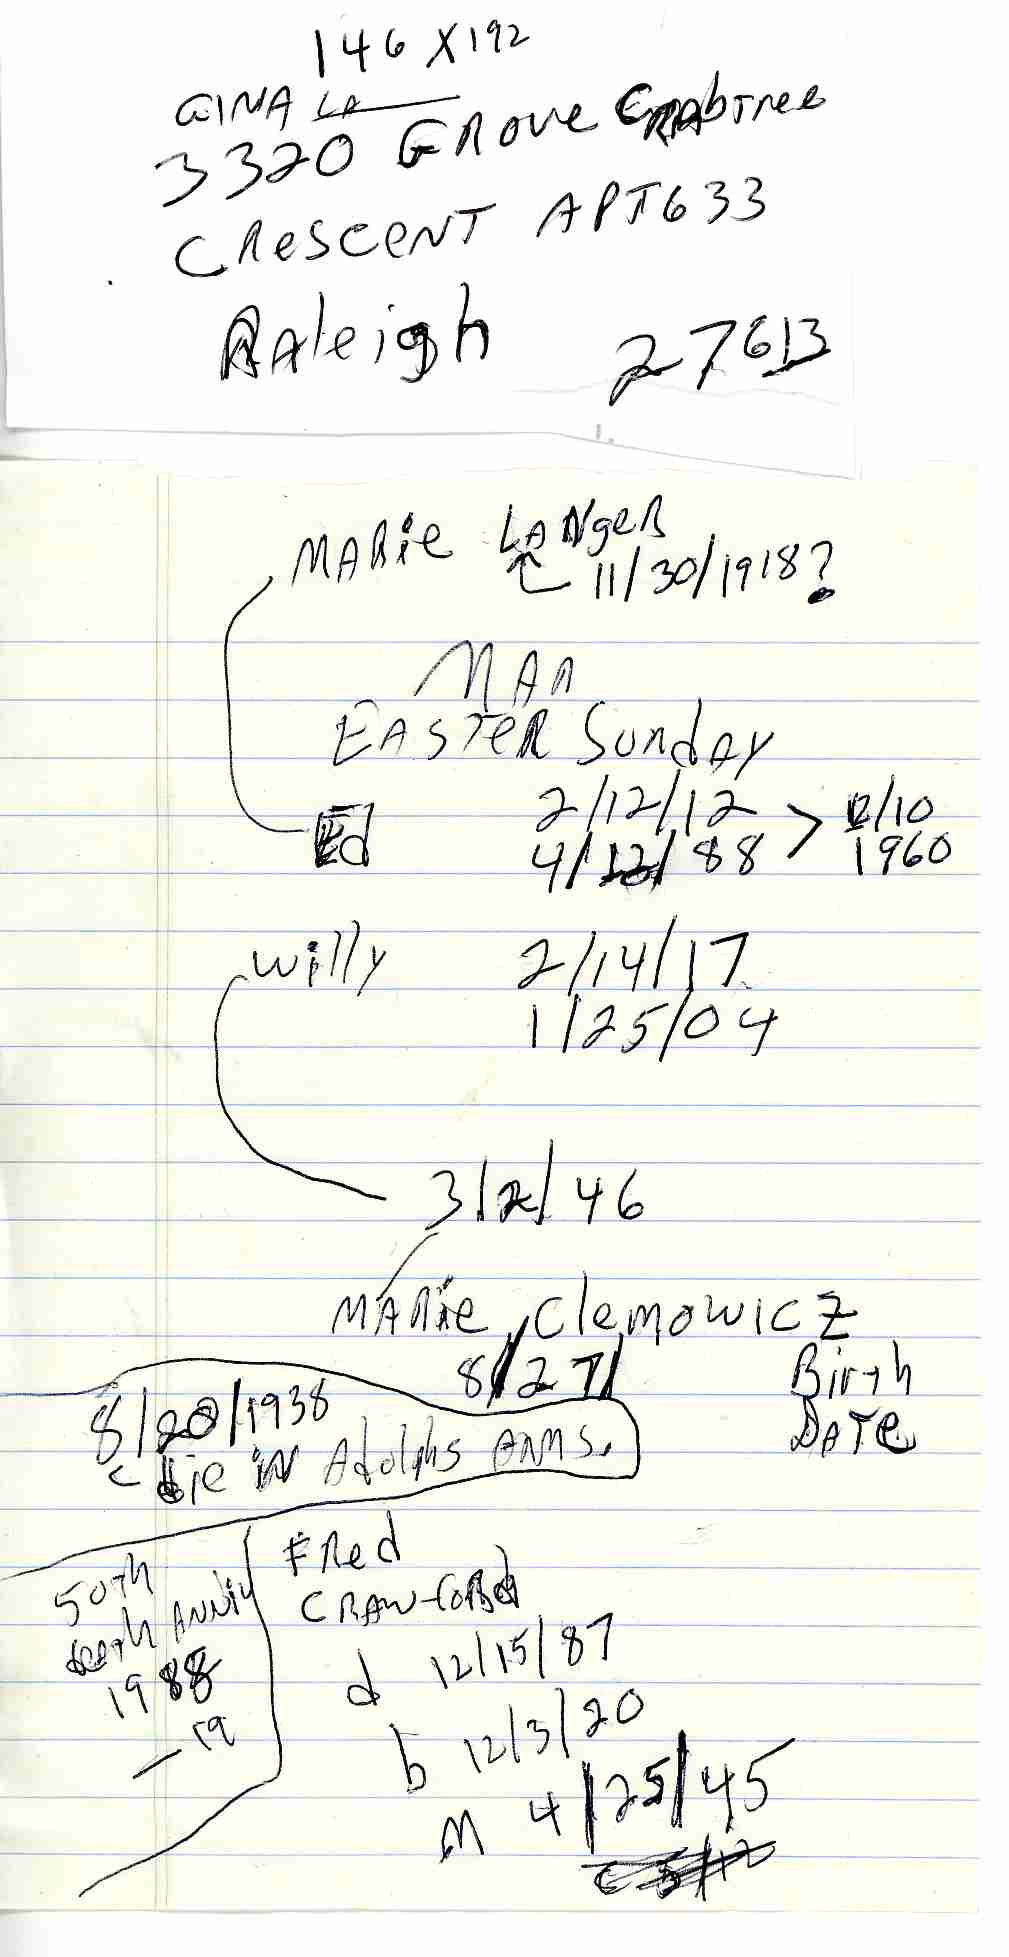 146 X192
GINA LA
3320 GROVE CRABTREE
CRESCENT APT 633
RALeigh 27613
MARie LANgeR
11/30/1918?
EASTER SundAy
Ed 2/12/12 > 12/10
4/12/88 1960
Willy 2/14/17
1/25/04
3/2/46
MARie Clemowicz
8/27/ Birth
DATe
8/20/1938
die in Adolphs ARMS.
50th
death ANNiv
1988
19
FRed
CRAWfoRd
d 12/15/87
b 12/3/20
M 4/25/45